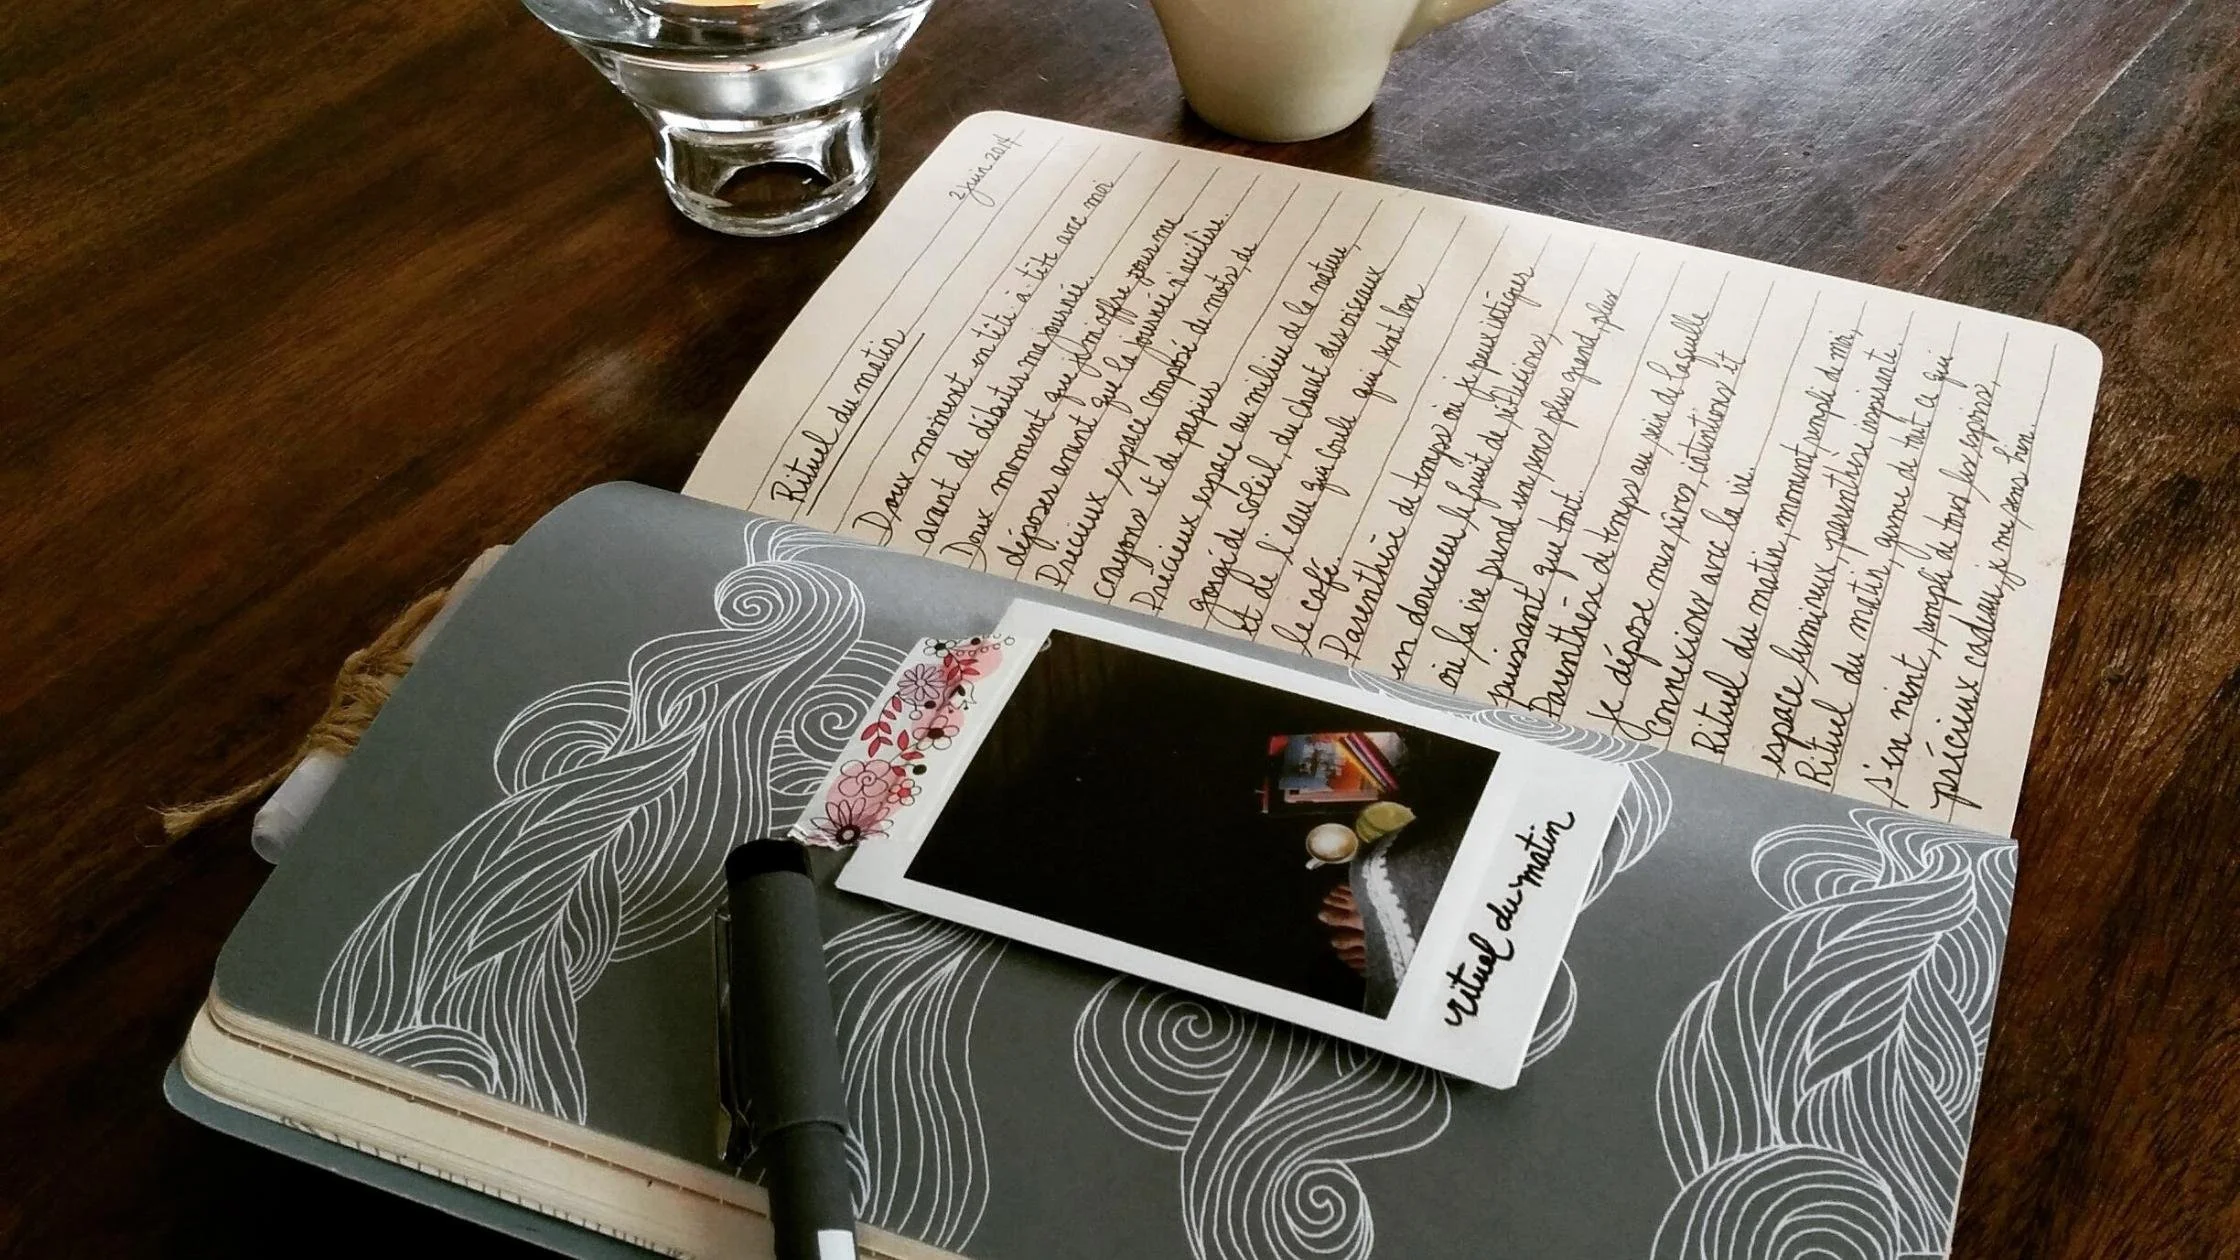 2 juin 2014
Rituel du matin
Doux moment en tête-à-tête avec moi
avant de débuter ma journée.
Doux moment que je m'offre pour me
déposer avant que la journée n'accélère.
Précieux espace composé de mots, de
crayons et de papier
Précieux espace au milieu de la nature,
gorgé de soleil, du chant des oiseaux
et de l'eau qui coule qui sent bon
le café.
Parenthèse de temps où je peux intégrer
en douceur le fruit de réflexions,
où la vie prend un sens plus grand, plus
puissant que tout
Parenthèse de temps au sein de laquelle
je dépose mes rêves, intentions et
connexions avec la vie.
Rituel du matin, moment rempli de moi,
espace lumineux, parenthèse inspirante.
Rituel du matin, gorgé de tout ce qui
s'en vient, rempli de tous les espoirs,
précieux cadeau, je me sens bien.
rituel du matin